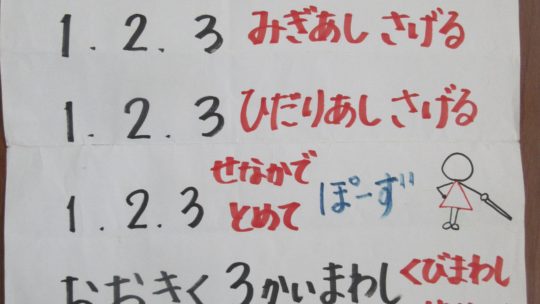 1.2.3 みぎあし さげる
1.2.3 ひだりあし さげる
1.2.3 せなかで とめて ぽーず
おおきく 3かいまわし くびまわし